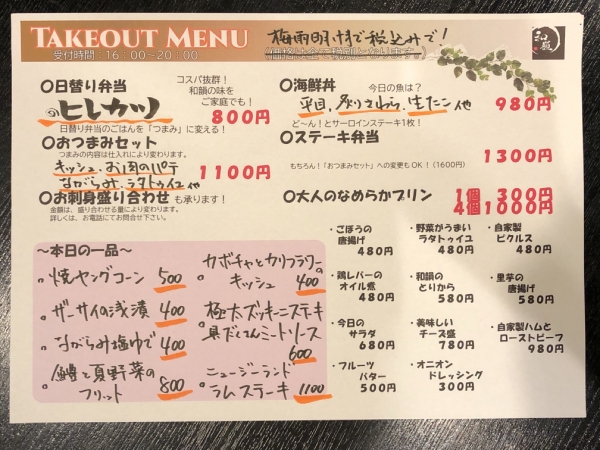 TAKEOUT MENU
受付時間 16:00~20:00
梅雨明けまで税込みで!
(価格は全て税別となります。)
和韻
○日替り弁当
コスパ抜群!
和韻の味を
ご家庭でも!
のヒレカツ
800円
日替り弁当のごはんを「つまみ」に変える!
○おつまみセット
つまみの内容は仕入れにより変わります。
キッシュ、お肉のパテ
ながらみ、ラタトゥイユ 他
1100円
○お刺身盛り合わせ も承ります!
金額は、盛り合わせる量により変わります。
詳しくは、お電話にてお問合せ下さい。
○海鮮丼
今日の魚は?
平目、炙りさわら、生たこ 他
980円
ど~ん!とサーロインステーキ1枚!
○ステーキ弁当
1300円
もちろん!「おつまみセット」への変更もOK!(1600円)
○大人のなめらかプリン
1個 300円
4個 1000円
~本日の一品~
・焼ヤングコーン 500
・ザーサイの浅漬 400
・ながらみ塩ゆで 400
・鱧と夏野菜の
フリット 800
・カボチャとカリフラワーの
キッシュ 400
・極太ズッキーニステーキ
具だくさんミートソース
600
・ニュージーランド
ラムステーキ 1100
・ごぼうの
唐揚げ
480円
・野菜がうまい
ラタトゥイユ
480円
・自家製
ピクルス
480円
・鶏レバーの
オイル煮
480円
・和韻の
とりから
580円
・里芋の
唐揚げ
580円
・今日の
サラダ
680円
・美味しい
チーズ盛
780円
・自家製ハムと
ローストビーフ
980円
・フルーツ
バター
500円
・オニオン
ドレッシング
300円